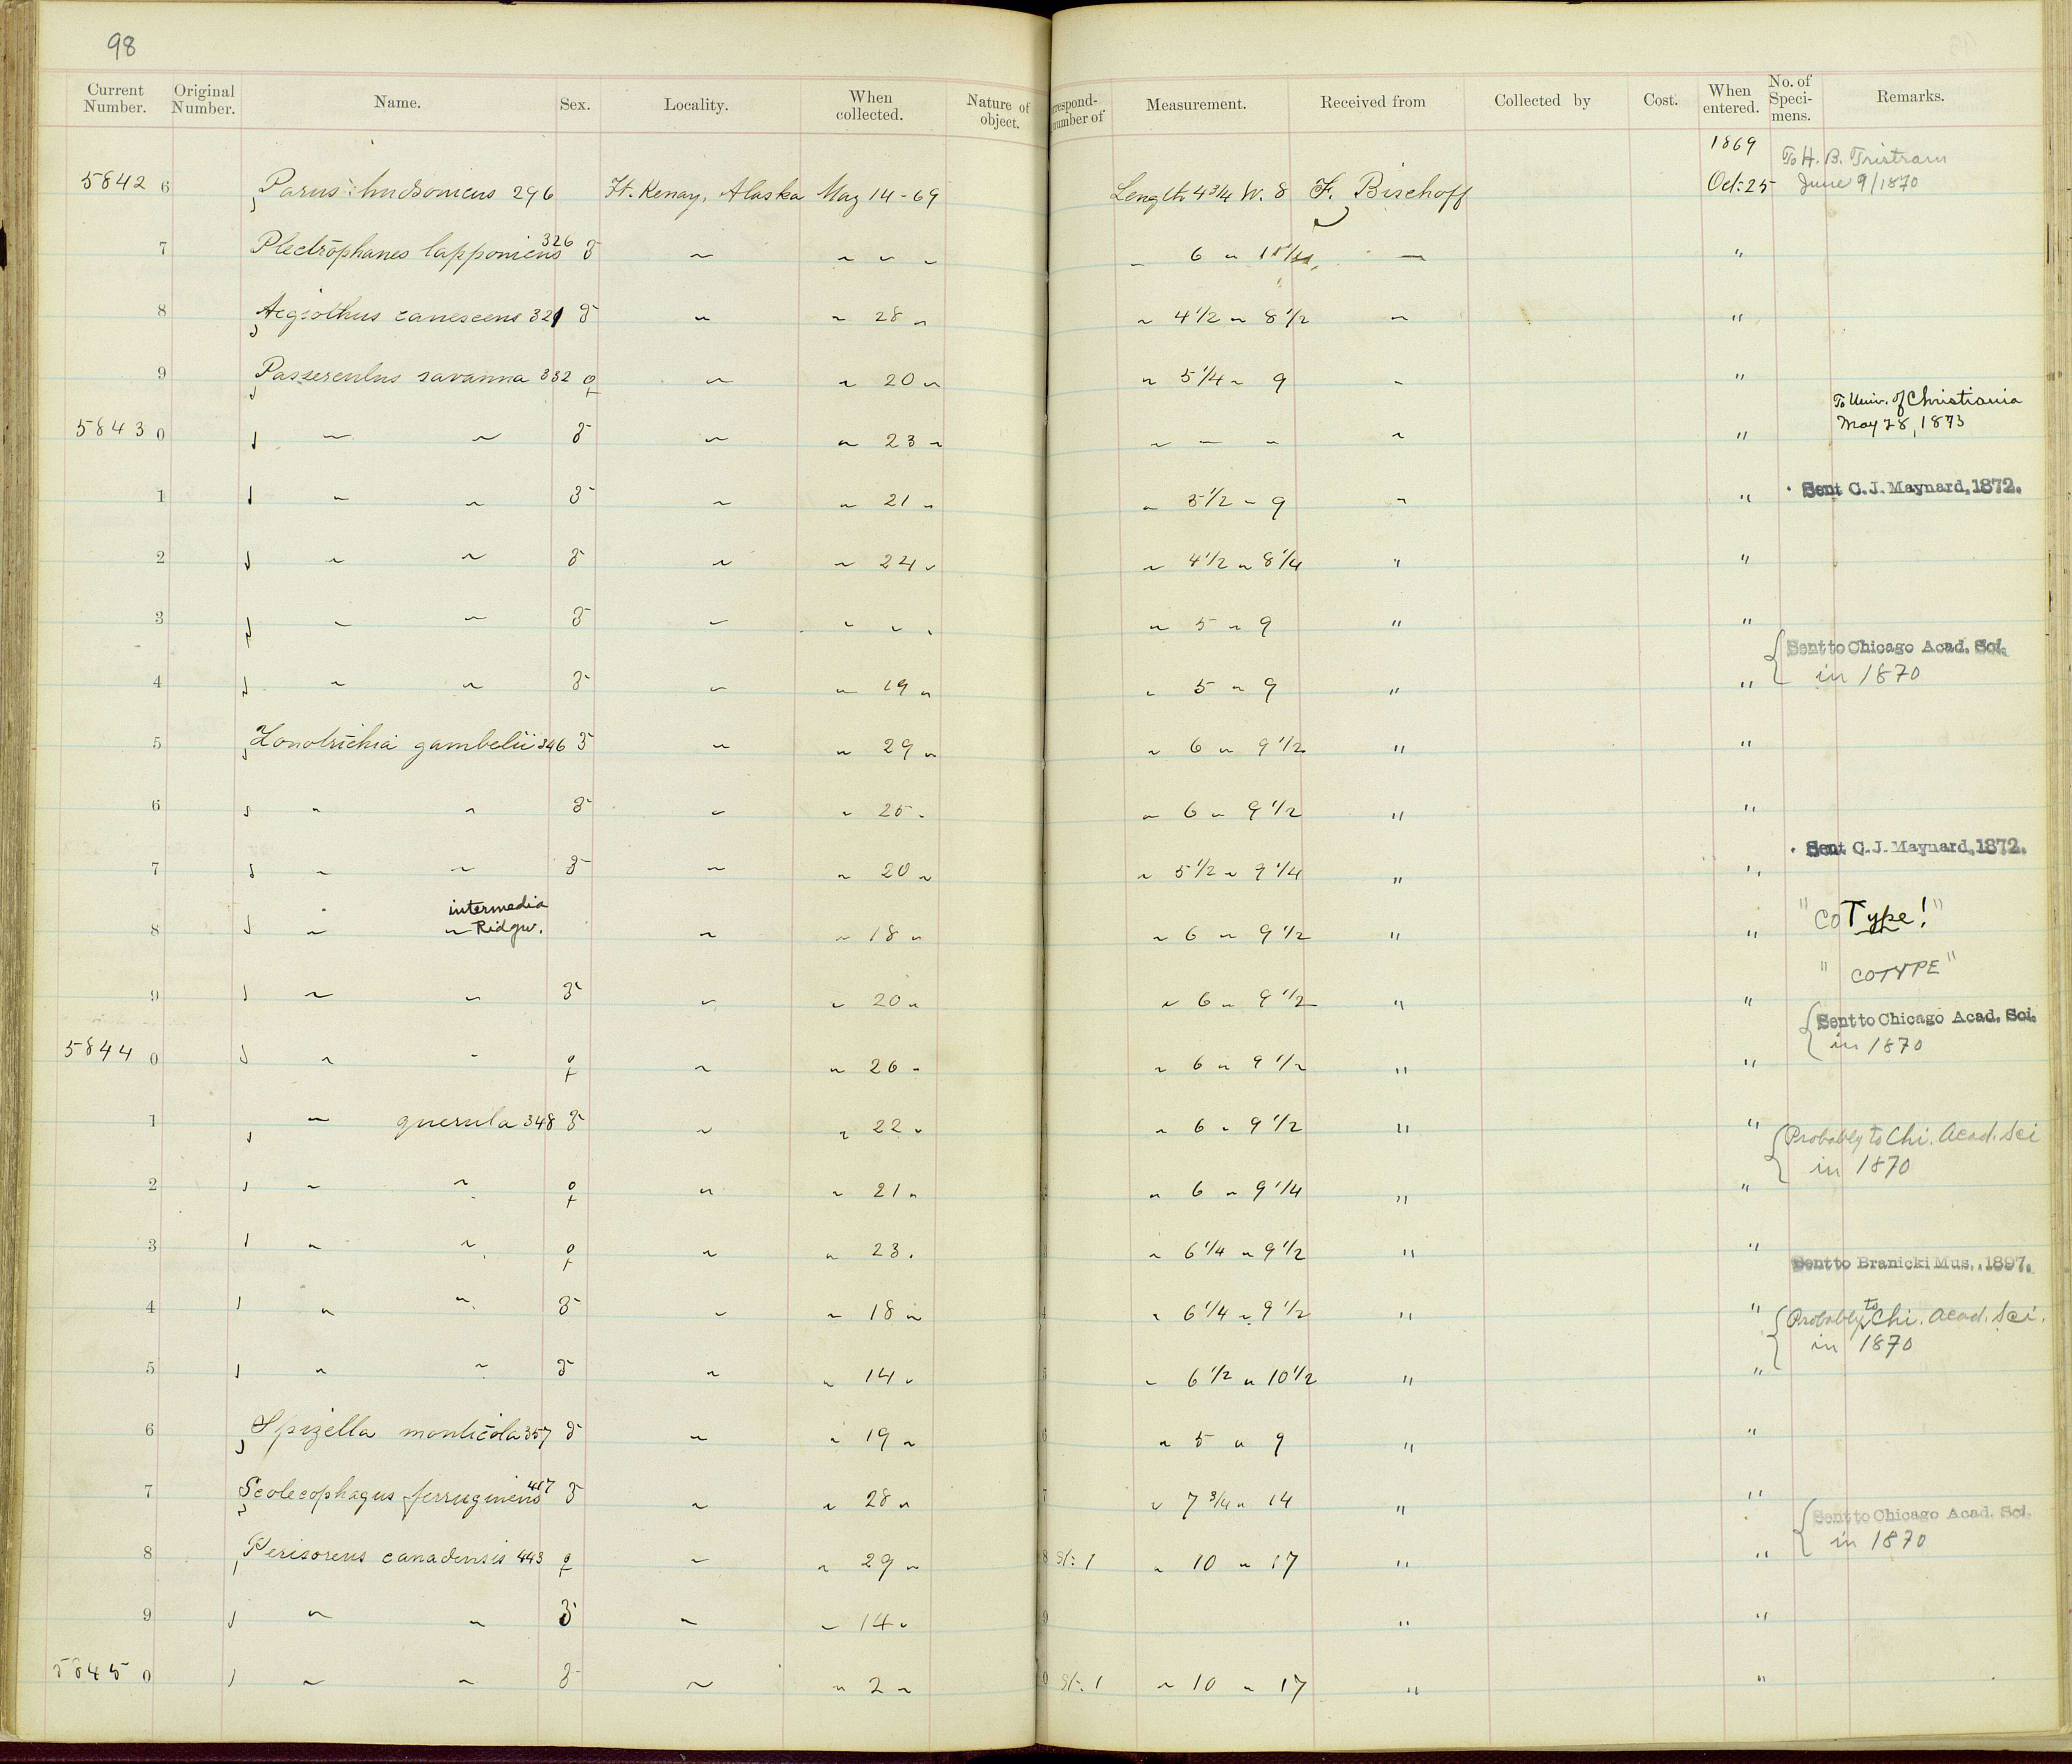 98
Current Number. Original Number. Name. Sex. Locality. When collected. Nature of object. respond- number of Measurement. Received from Collected by Cost. When entered. No. of Speci- mens. Remarks.
1869 To H. B. Tristram
58426 Parus hudsonicus 296 Ft. Kenay, Alaska May 14-69 Length 4 3/4 W. 8 F. Bischoff Oct: 25 June 9/1870
7 Plectrophanes lapponicus 326 ♂ " " " " " 6 " "
8 Aegiothus canescens 321 ♂ " " 28 " " 4 1/2 " 8 1/2 " "
9 Passerculus savanna 332 ♀ " " 20 " " 5 1/4 " 9 " "
To Univ. of Christiania
58430 " " ♂ " " 23 " " " " " " May 28, 1873
1 " " ♂ " " 21 " " 5 1/2 " 9 " " Sent C. J. Maynard, 1872.
2 " " ♂ " " 24 " " 4 1/2 " 8 1/4 " "
3 " " ♂ " " " " " 5 " 9 " "
Sent to Chicago Acad. Sci.
4 " " ♂ " " 19 " " 5 " 9 " " in 1870
5 Zonotrichia gambelii 346 ♂ " " 29 " " 6 " 9 1/2 " "
6 " " ♂ " " 25 " " 6 " 9 1/2 " "
7 " " ♂ " " 20 " " 5 1/2 " 9 1/4 " " Sent C. J. Maynard, 1872.
intermedia
8 " " Ridgw. " " 18 " " 6 " 9 1/2 " " "CoType!"
9 " " ♂ " " 20 " " 6 " 9 1/2 " " "COTYPE"
Sent to Chicago Acad. Sci.
58440 " " ♀ " " 26 " " 6 " 9 1/2 " " in 1870
1 " querula 348 ♂ " " 22 " " 6 " 9 1/2 " " Probably to Chi. Acad. Sci
in 1870
2 " " ♀ " " 21 " " 6 " 9 1/4 " "
3 " " ♀ " " 23 " " 6 1/4 " 9 1/2 " " Sent to Branicki Mus., 1897.
4 " " ♂ " " 18 " " 6 1/4 " 9 1/2 " " Probably to Chi. Acad. Sci.
in 1870
5 " " ♂ " " 14 " " 6 1/2 " 10 1/2 " "
6 Spizella monticola 357 ♂ " " 19 " " 5 " 9 " "
7 Scolecophagus ferrugineus 417 ♂ " " 28 " " 7 3/4 " 14 " "
Sent to Chicago Acad. Sci.
8 Perisoreus canadensis 443 ♀ " " 29 " St. 1 " 10 " 17 " " in 1870
9 " " ♂ " " 14 " " "
58450 " " ♂ " " 2 " St. 1 " 10 " 17 " "